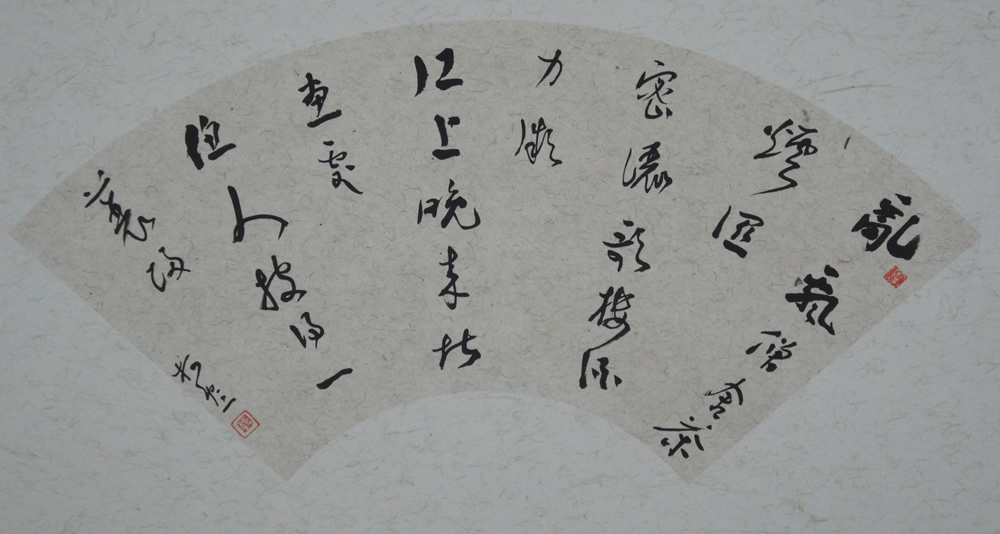 亂飄僧舍茶
煙溼
密灑歌樓酒
力微
江上晚來堪
畫處
漁人披得一
蓑歸